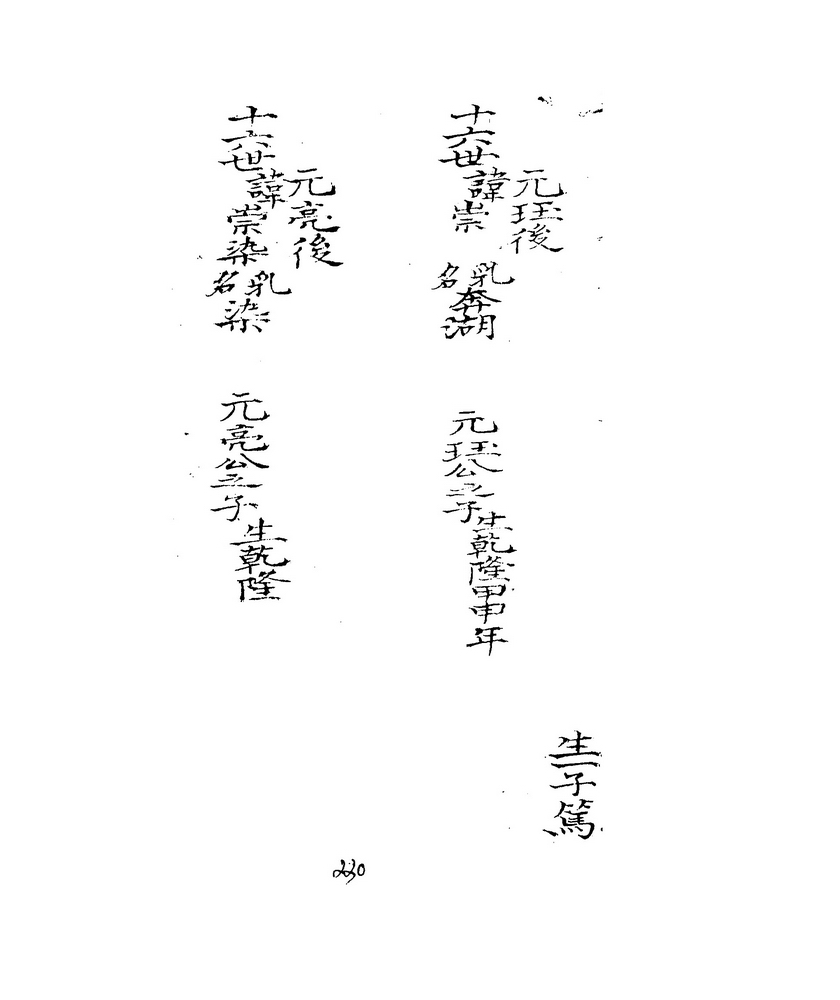 生一子篤
元珏後
十六世諱崇 乳名奔湖 元珏公之子生乾隆甲申年
元亮後
十六世諱崇染乳名染 元亮公之子生乾隆
230